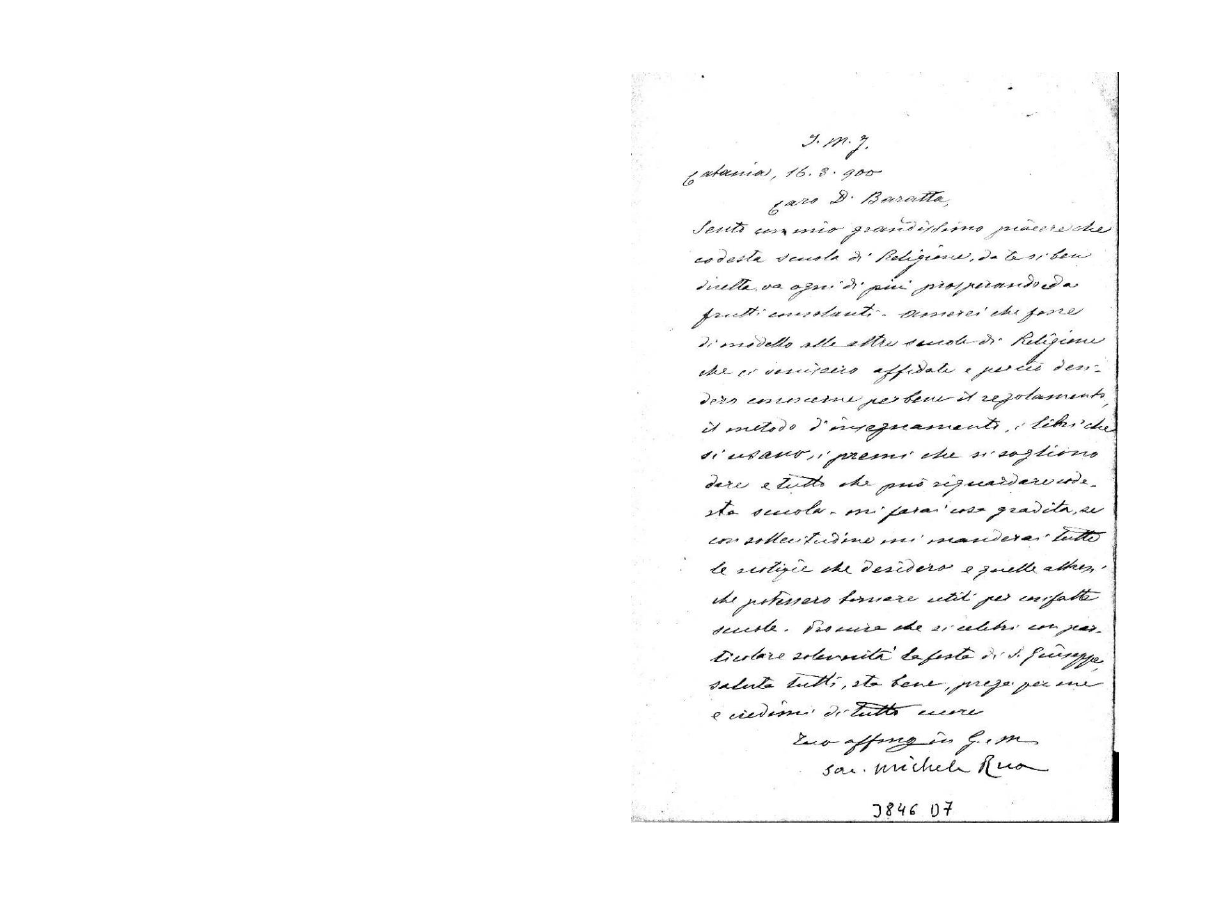 J. M. J.
Catania, 16. 3. 900
Caro D. Baratta,
Sento con mio grandissimo piacere che
codesta scuola di Religione, da te sì ben
diretta va ogni dì più prosperando e dà
frutti consolanti. Amerei che fosse
di modello alle altre scuole di Religione
che ci venissero affidate e perciò desi-
dero conoscerne per bene il regolamento,
il metodo d'insegnamento, i libri che
si usano, i premi che si sogliono
dare e tutto che può riguardare code-
sta scuola. Mi farai cosa gradita, se
con sollecitudine mi manderai tutte
le notizie che desidero e quelle altresì
che potessero tornare utili per cosifatte
scuole. Procura che si celebri con par-
ticolare solennità la festa di S. Giuseppe,
saluta tutti, sta bene, prega per me
e credimi di tutto cuore
Tuo affmo in G. e M.
Sac. Michele Rua
3846 D7